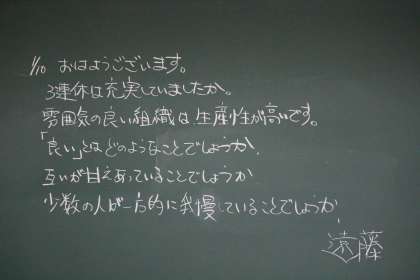 1/10 おはようございます。
3連休は充実していましたか。
雰囲気の良い組織は、生産性が高いです。
「良い」とはどのようなことでしょうか。
互いが甘えあっていることでしょうか
少数の人が一方的に我慢していることでしょうか。
遠藤